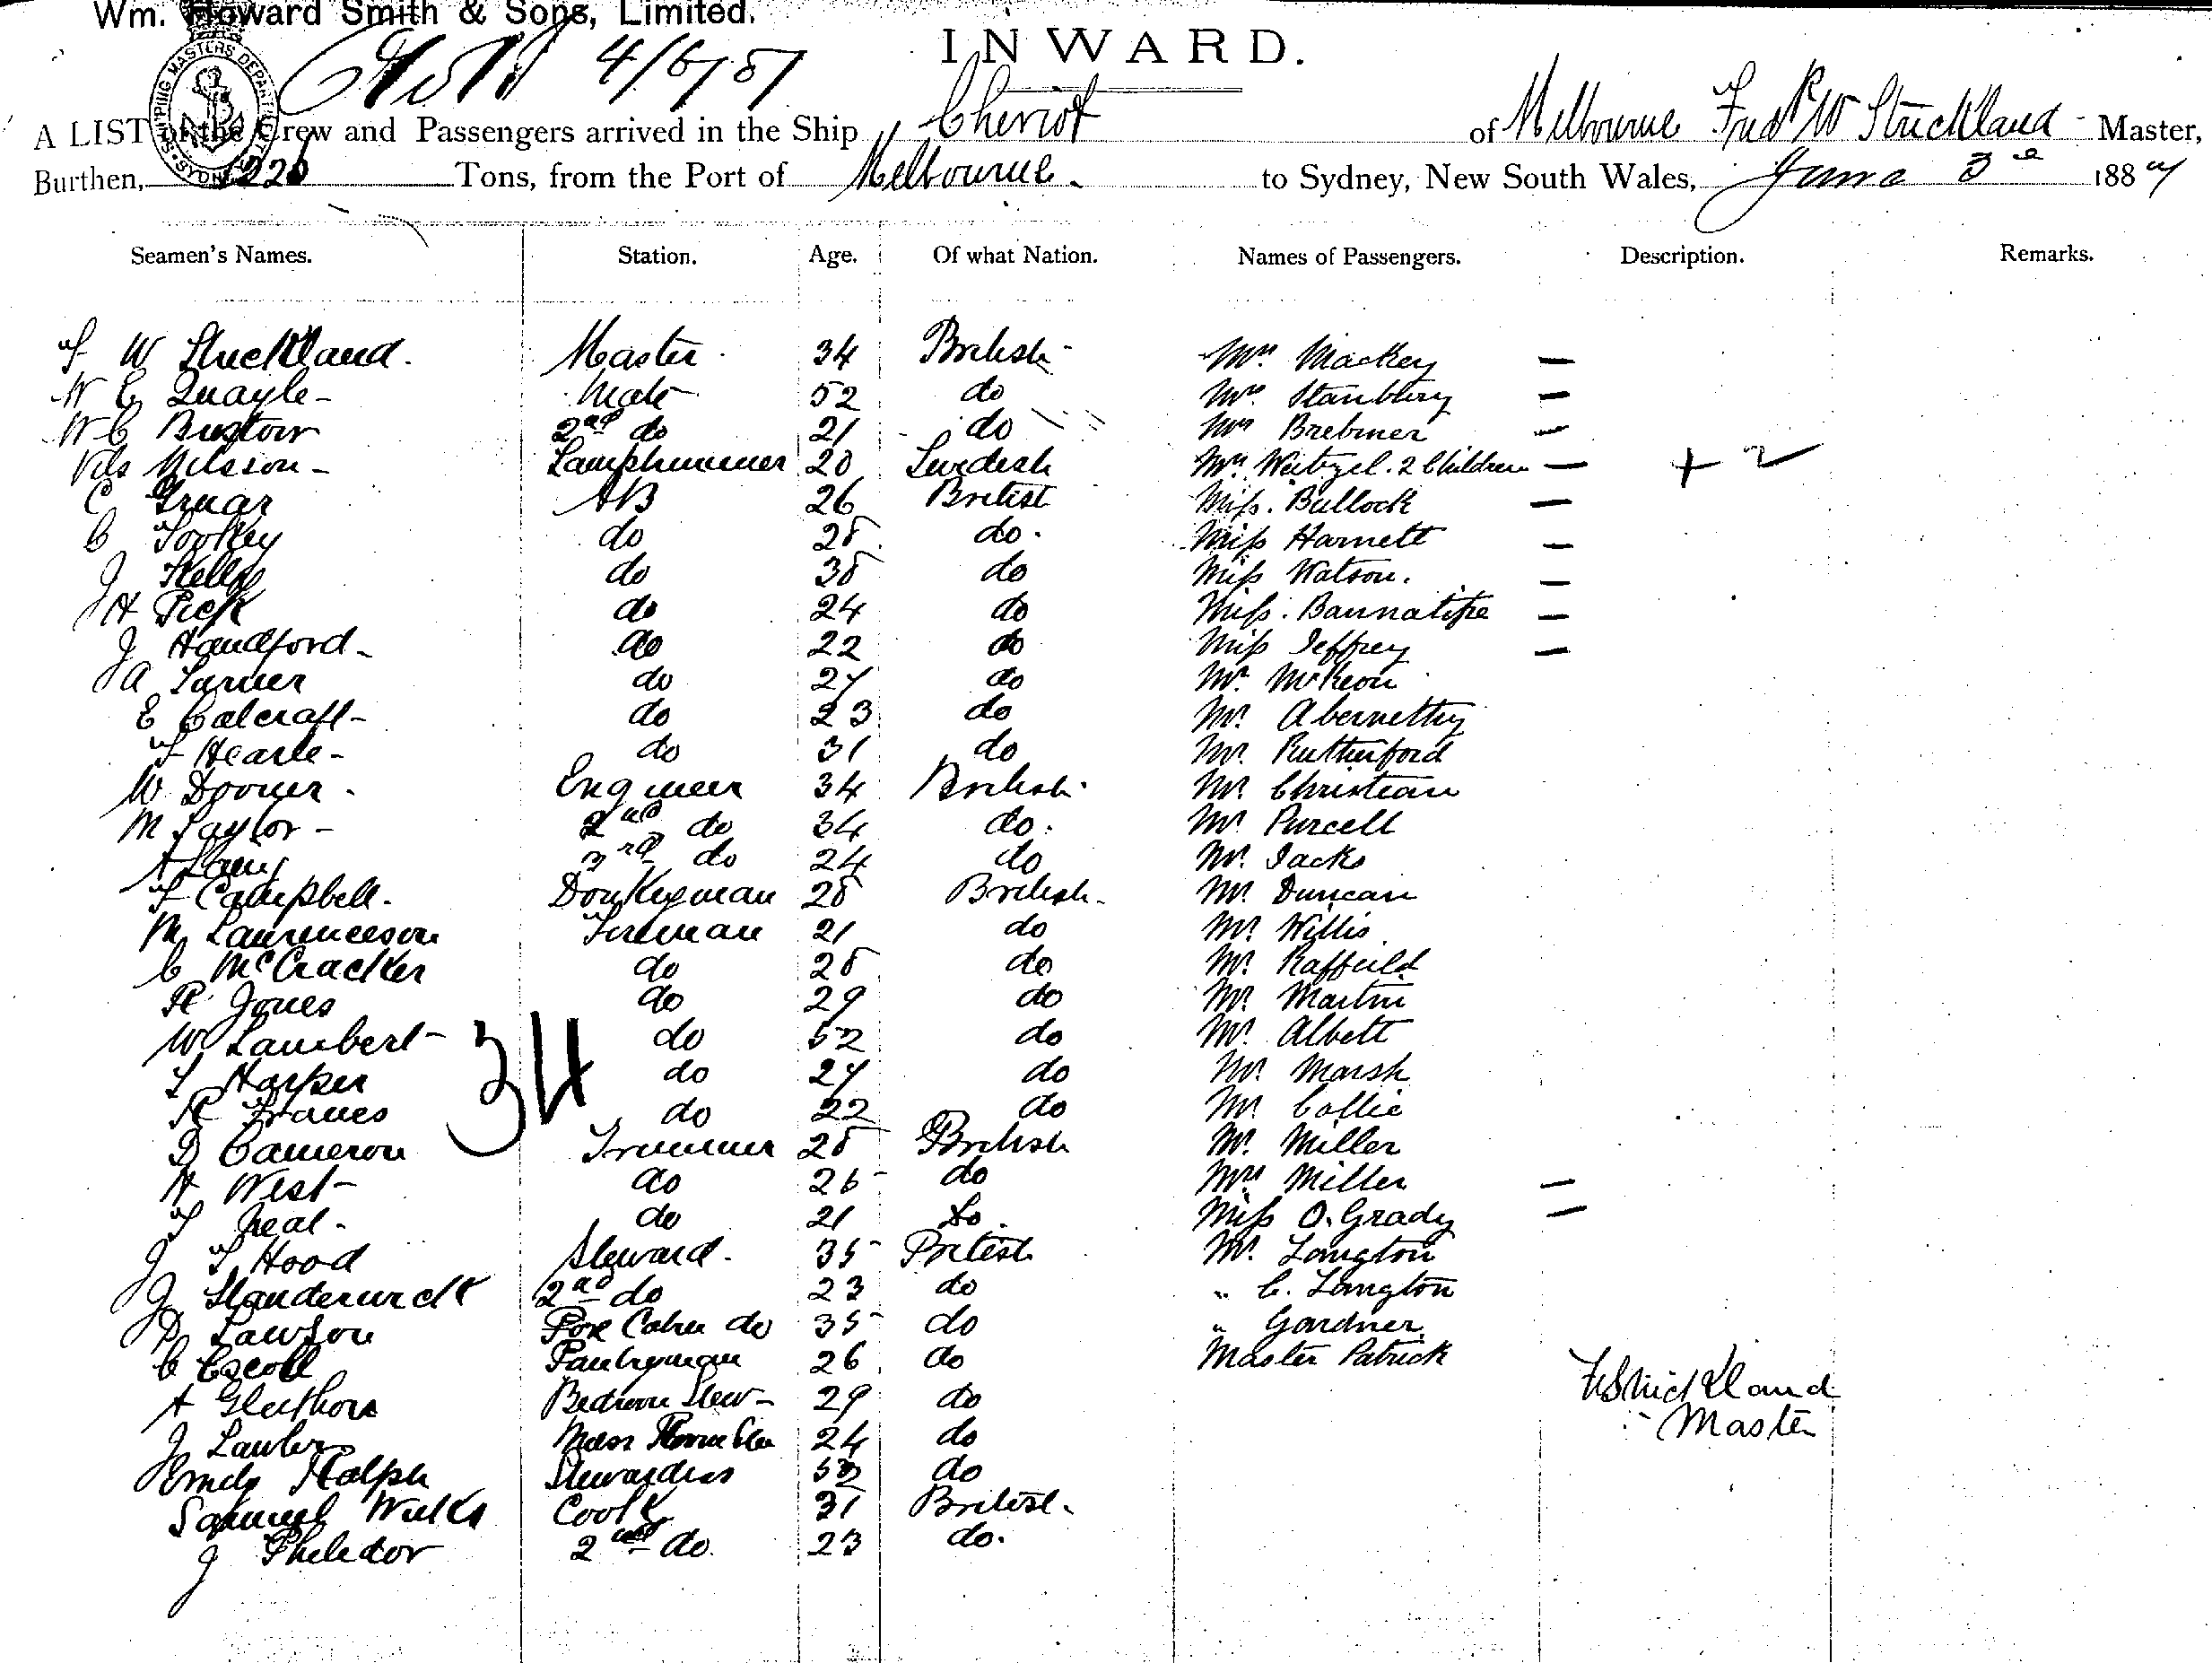 Wm. Howard Smith & Sons, Limited.
INWARD.
4/6/87
SHIPPING MASTERS DEPARTMENT SYDNEY
A LIST of the Crew and Passengers arrived in the Ship Cheviot of Melbourne Fredk W Strickland Master,
Burthen, 1226 Tons, from the Port of Melbourne. to Sydney, New South Wales, June 3rd 1887
Seamen's Names. Station. Age. Of what Nation. Names of Passengers. Description. Remarks.
F W Strickland. Master 34 British Mrs Mackey —
W C Quayle Mate 52 do Mrs Stanbury —
W C Buxton 2nd do 21 do Mrs Brebmer —
Nils Nilsson Lamptrimmer 20 Swedish Mrs Weitzel. 2 Children — + 2
C Gruar AB 26 British Miss. Bullock —
C Tookey do 28 do. Miss Harnett —
J Kelly do 38 do Miss Watson. —
J H Pick do 24 do Miss. Bannatipe —
J Handford do 22 do Miss Jeffrey —
J A Turner do 27 do Mr. McKeon
E Calcraft do 23 do Mr. Abernethy
F Hearle do 31 do Mr. Rutherford
W Doover Engineer 34 British Mr. Christian
M Taylor 2nd do 34 do. Mr. Purcell
A Lang 3rd do 24 do Mr. Jacks
F Campbell. Donkeyman 28 British Mr. Duncan
M Laurenceson Fireman 21 do Mr. Willis
C McCracken do 28 do Mr. Raffield
R Jones do 29 do Mr. Martin
W Lambert do 52 do Mr. Albett
34
T Harper do 27 do Mr. Marsh
R Francs do 22 do Mr. Collie
D Cameron Trimmer 28 British Mr. Miller
H West do 26 do Mrs Miller —
T Neal do 21 do. Miss O'Grady —
J T Hood Steward. 35 British Mr. Langton
J Standerwick 2nd do 23 do " C. Langton
D Lawson Fore Cabin do 35 do " Gardner
C Escott Pantryman 26 do Master Patrick
A Gleithorn Bedroom Stew 29 do
F Strickland
J Lawler Mess Room Stew 24 do
Master
Emily Ralph Stewardess 52 do
Samuel Wilks Cook 31 British
J Pheledor 2nd do 23 do.